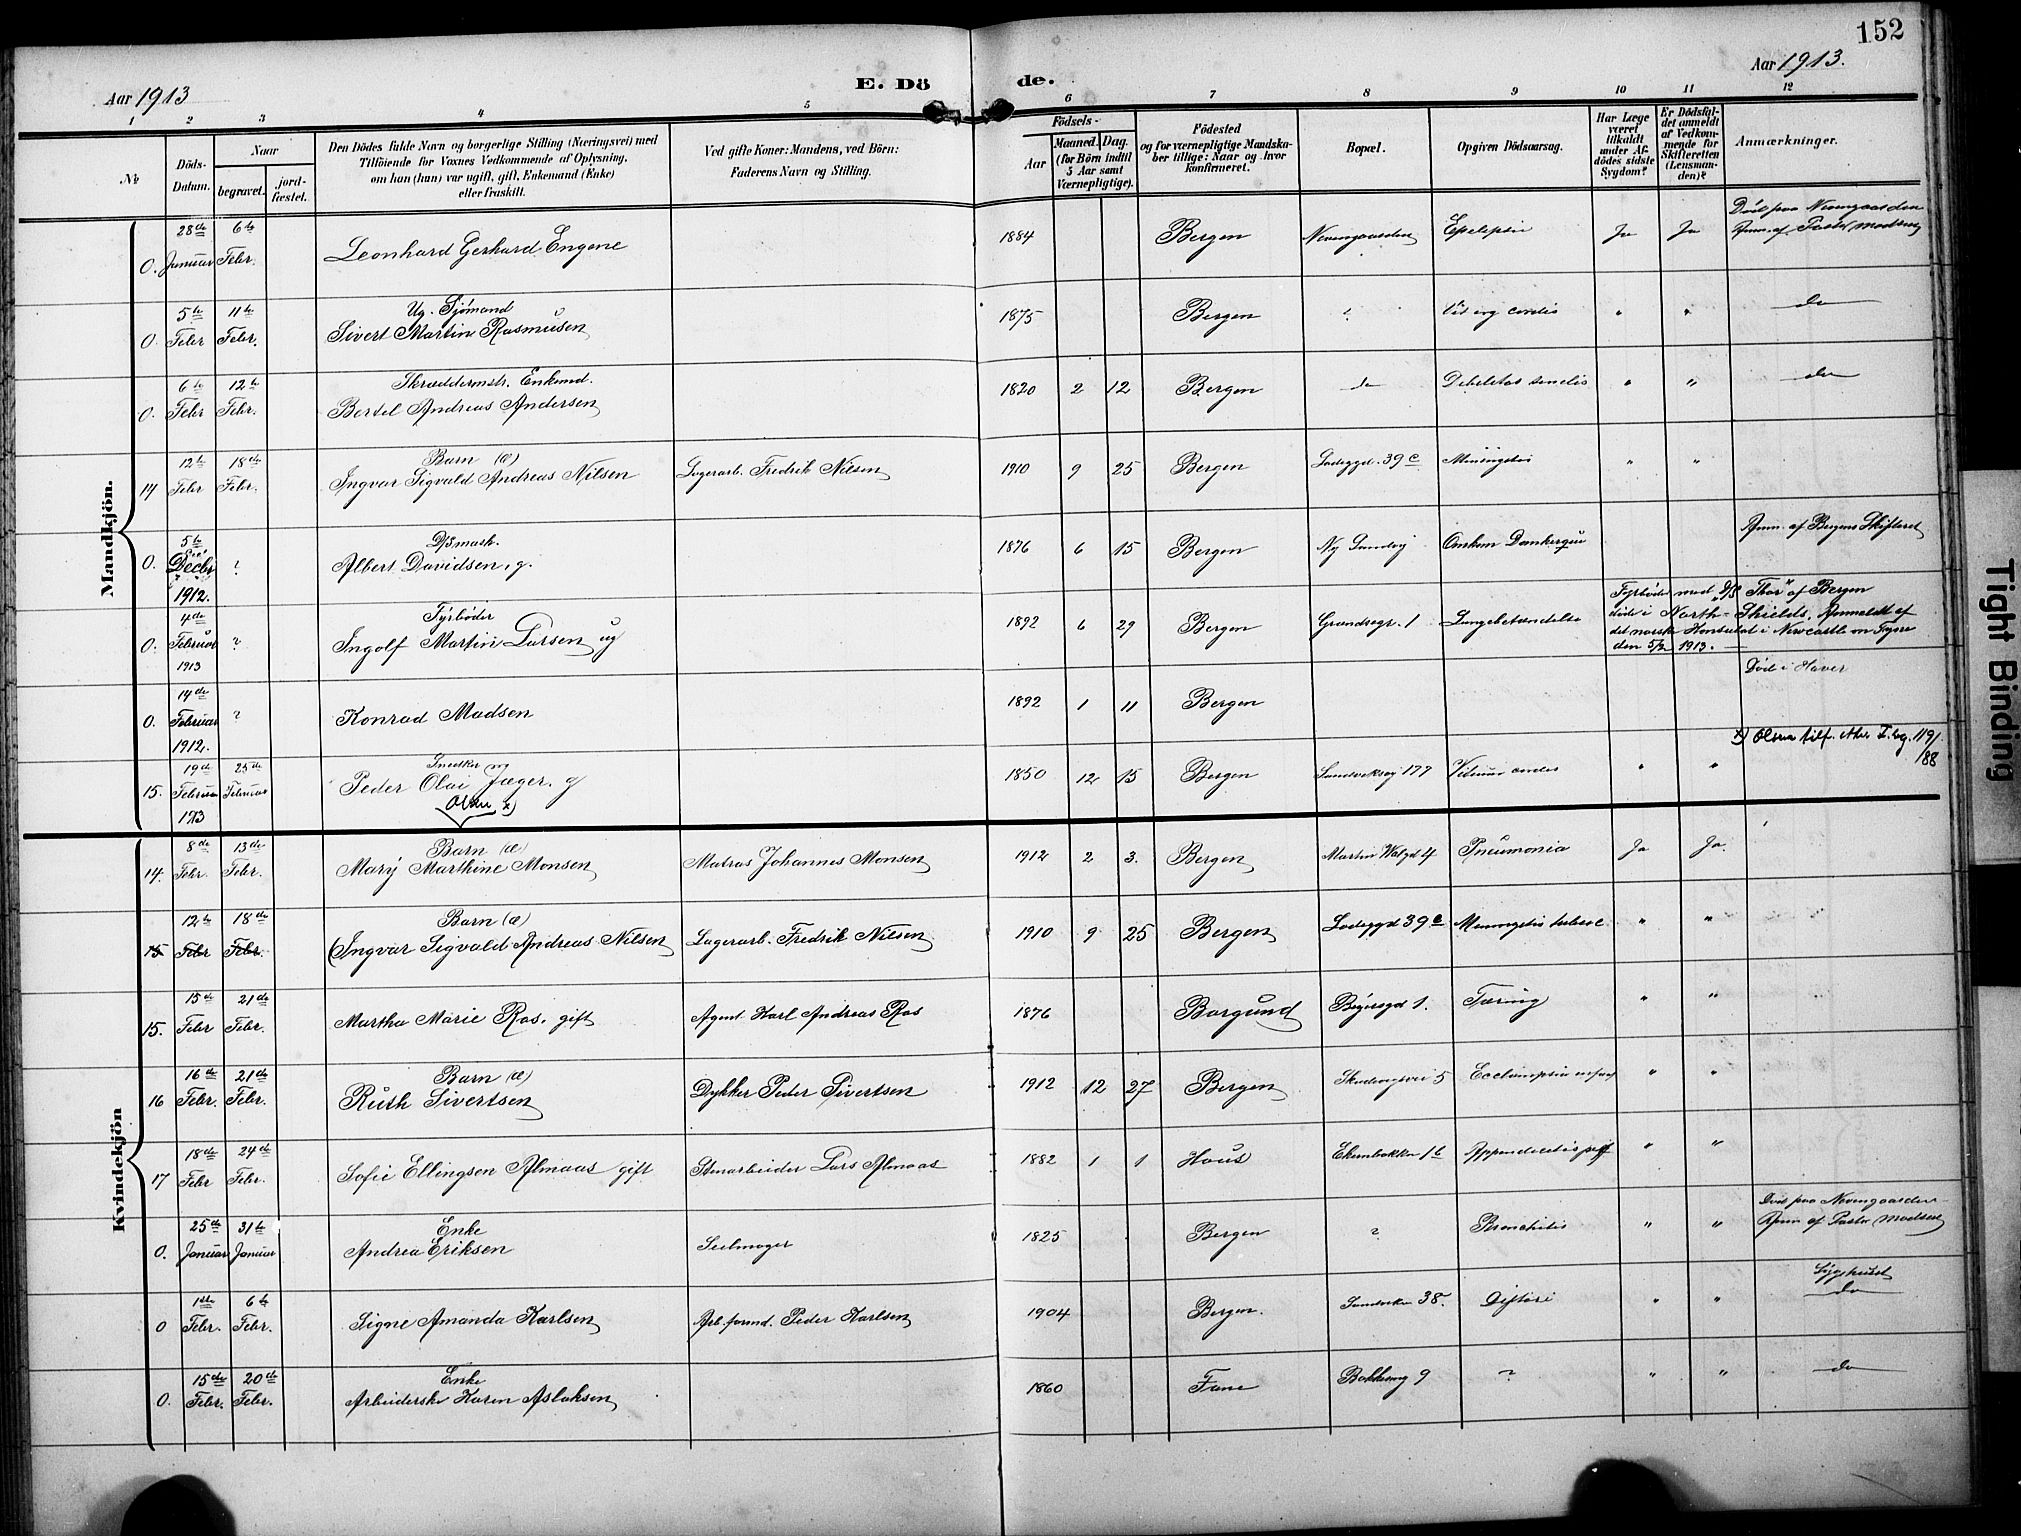 152
Aar 1913
E. Dö de.
Aar 1913.
1 2 3 4 5 6 7 8 9 10 11 12
No
Döds-Datum.
Naar
begravet.
jord-fæstet.
Den Dödes fulde Navn og borgerlige Stilling (Næringsvei) med
Tilföiende for Voxnes Vedkommende af Oplysning,
om han (hun) var ugift, gift, Enkemand (Enke)
eller fraskilt.
Ved gifte Koner: Mandens, ved Börn:
Faderens Navn og Stilling.
Födsels-
Aar
Maaned. Dag.
(for Börn indtil
5 Aar samt
Værnepligtige).
Födested
og for værnepligtige Mandska-
ber tillige: Naar og hvor
konfirmeret.
Bopæl.
Opgiven Dödsaarsag.
Har Læge
været
tilkaldt
under Af-
dödes sidste
Sygdom?
Er Dödsfal-
det anmeldt
af Vedkom-
mende for
Skifteretten
(Lensman-
den)?
Anmærkninger.
Mandkjön.
0. 28de Januar 6te Febr. Leonhard Gerhard Engene 1884 Bergen Nevengaarden Epelepsie Ja Ja Död paa Nevengaarden Anm. af Pastor Madsen
0. 5te Febr 11te Febr. Ug. Sjömand Sivert Martin Rasmusen 1875 Bergen ? Vit org cordis " " do
0. 6te Febr 12te Febr. Skræddermstr. Enkemd. Bertel Andreas Andersen 1820 2 12 Bergen do Debeletas senelis " " do
14 12te Febr 18de Febr. Barn (æ) Ingvar Sigvald Andreas Nilsen Lagerarb. Fredrik Nilsen 1910 9 25 Bergen Ladeggd. 39c " "
0. 5te Decbr 1912. ? Albert Davidsen, g. 1876 6 15 Bergen Ny Sandvj Anm. af Bergens Skifteret
0. 4de Februar 1913 ? Fyrböder Ingolf Martin Larsen ug 1892 6 29 Bergen Grandsgr. 1 Lungebetændelse Fyrböder med D/S "Thor" af Bergen
döde i North-Shields. Anmeldt af
det norske Konsulat i Newcastle on Tyne
den 5/2 1913.
0. 14de Februar 1912. ? Konrad Madsen 1892 1 11 Bergen Död i Haver
15. 19de Februar 1913 25de Februar Snedker Peder Olai Jæger. g Olsen x) 1850 12 15 Bergen Sandviksvj 177 Vitium cordis " " x) Olsen tilf. etter I. bg. 119/88
Kvindekjön
14. 8de Febr. 13de Febr. Barn (æ) Mary Marthine Monsen Matros Johannes Monsen 1912 2 3. Bergen Martin Valgd 4 Pneumonia Ja Ja.
15 12te Febr 18de Febr. Barn (æ) (Ingvar Sigvald Andreas Nilsen Lagerarb. Fredrik Nilsen 1910 9 25 Bergen Ladeggd 39c Meningetis tuberc " "
15. 15de Febr 21de Febr. Martha Marie Ros, gift Agent Karl Andreas Ros 1876 Borgund Bøgersgd 1. Tæring " "
16 16de Febr. 21de Febr. Barn (æ) Ruth Sivertsen Dykker Peder Sivertsen 1912 12 27 Bergen 5 Ecclampsia " "
17 18de Febr 24de Febr. Sofie Ellingsen Almaas gift Stenarbeider Lars Almaas 1882 1 1 Hous Ekernbakken 1b Appendicitis " "
0. 25de Januar 31te Januar Enke Andrea Eriksen Seilmager 1825 Bergen ? Bronchitis " " Död paa Nevengaarden Anm af Pastor Madsen
0 1ste Febr. 6te Febr. Signe Amanda Karlsen Arb.formd. Peder Karlsen 1904 Bergen. Sandviken 38. Difteri " " Sygehuset do
0. 15de Febr. 20de Febr. Enke Arbeiderske Karen Aslaksen 1860 Fane Bakkevg 9 ? " " do
Tight Binding